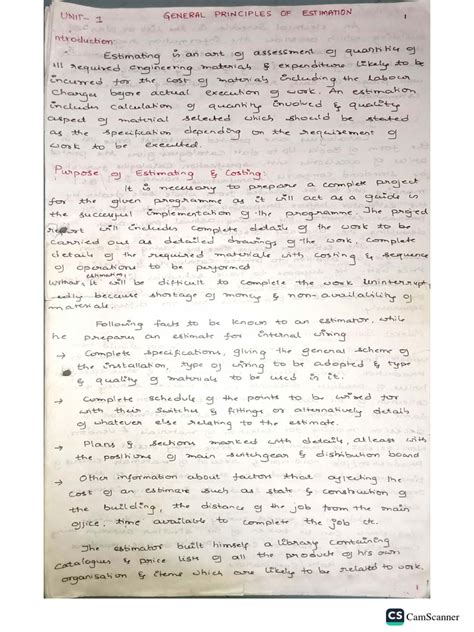 UNIT-1 GENERAL PRINCIPLES OF ESTIMATION 1
ntroduction
Estimating is an art of assessment of quantities of
all required engineering materials & expenditure likely to be
incurred for the cost of materials including the Labour
Charges before actual execution of work. An estimation
includes calculation of quantity involved & quality
aspect of material selected which should be stated
as the specification depending on the requirement of
work to be executed.
Purpose of Estimating & Costing:
It is necessary to prepare a complete project
for the given programme as it will act as a guide in
the successful implementation of the programme. The project
report will includes complete details of the work to be
carried out as detailed drawings of the work, complete
details of the required materials with costing & sequence
of operations to be performed
estimation,
without it will be difficult to complete the work uninterrupt
edly because shortage of money & non-availability of
materials.
Following facts to be known to an estimator, while
he prepares an estimate for internal wiring
→ Complete specifications, giving the general scheme of
the installation, type of wiring to be adopted & type
& quality of materials to be used in it.
→ Complete schedule of the points to be wired for
with their switches & fittings or alternatively details
of whatever else relating to the estimate.
→ Plans & sections marked with details, atleast with
the positions of main switchgear & distribution board
→ Other information about factors that affecting the
cost of an estimate such as state & construction of
the building, the distance of the job from the main
office, time available to complete the job etc.
The estimator built himself a library containing
catalogues & price lists of all the product of his own
organisation & items which are likely to be related to work.
1
CS CamScanner